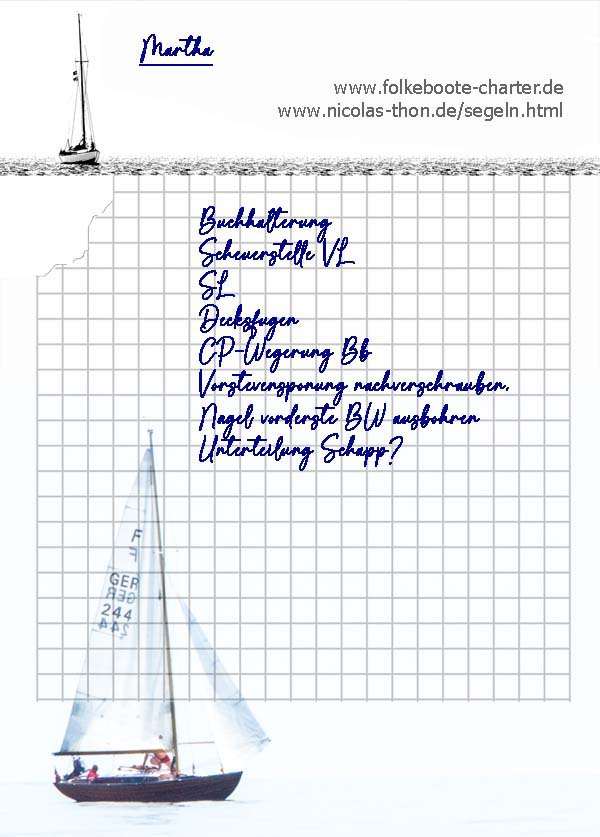 Martha
www.folkeboote-charter.de
www.nicolas-thon.de/segeln.html
Buchhalterung
Scheuerstelle VL
SL
Decksfugen
CP-Wegerung Bb
Vorstevensponung nachverschrauben.
Nagel vorderste BW ausbohren
Unterteilung Schapp?
F
F
GER
GER
244
244